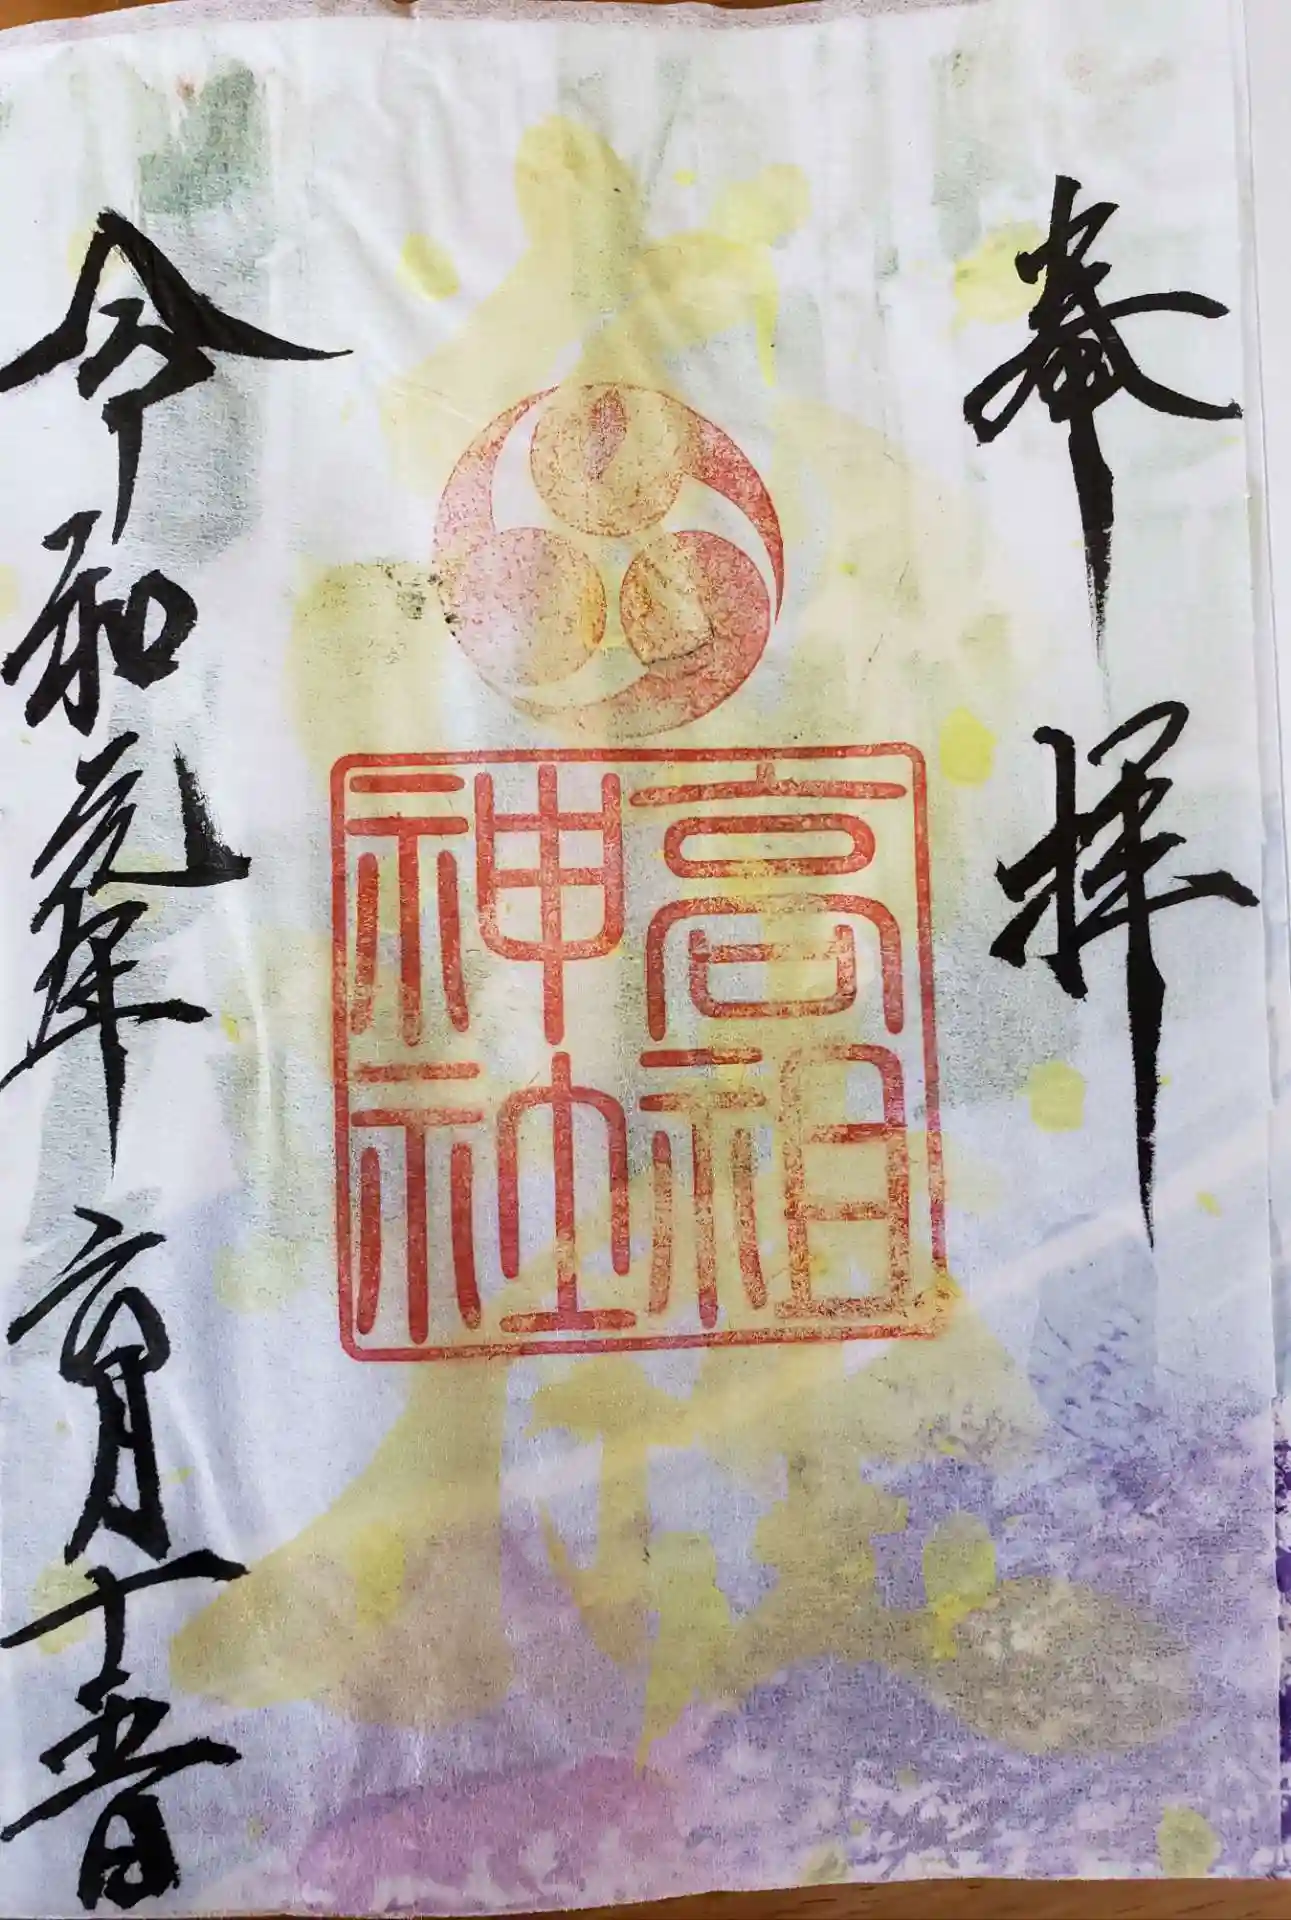 奉拝
高祖
神社
令和元年六月十五日